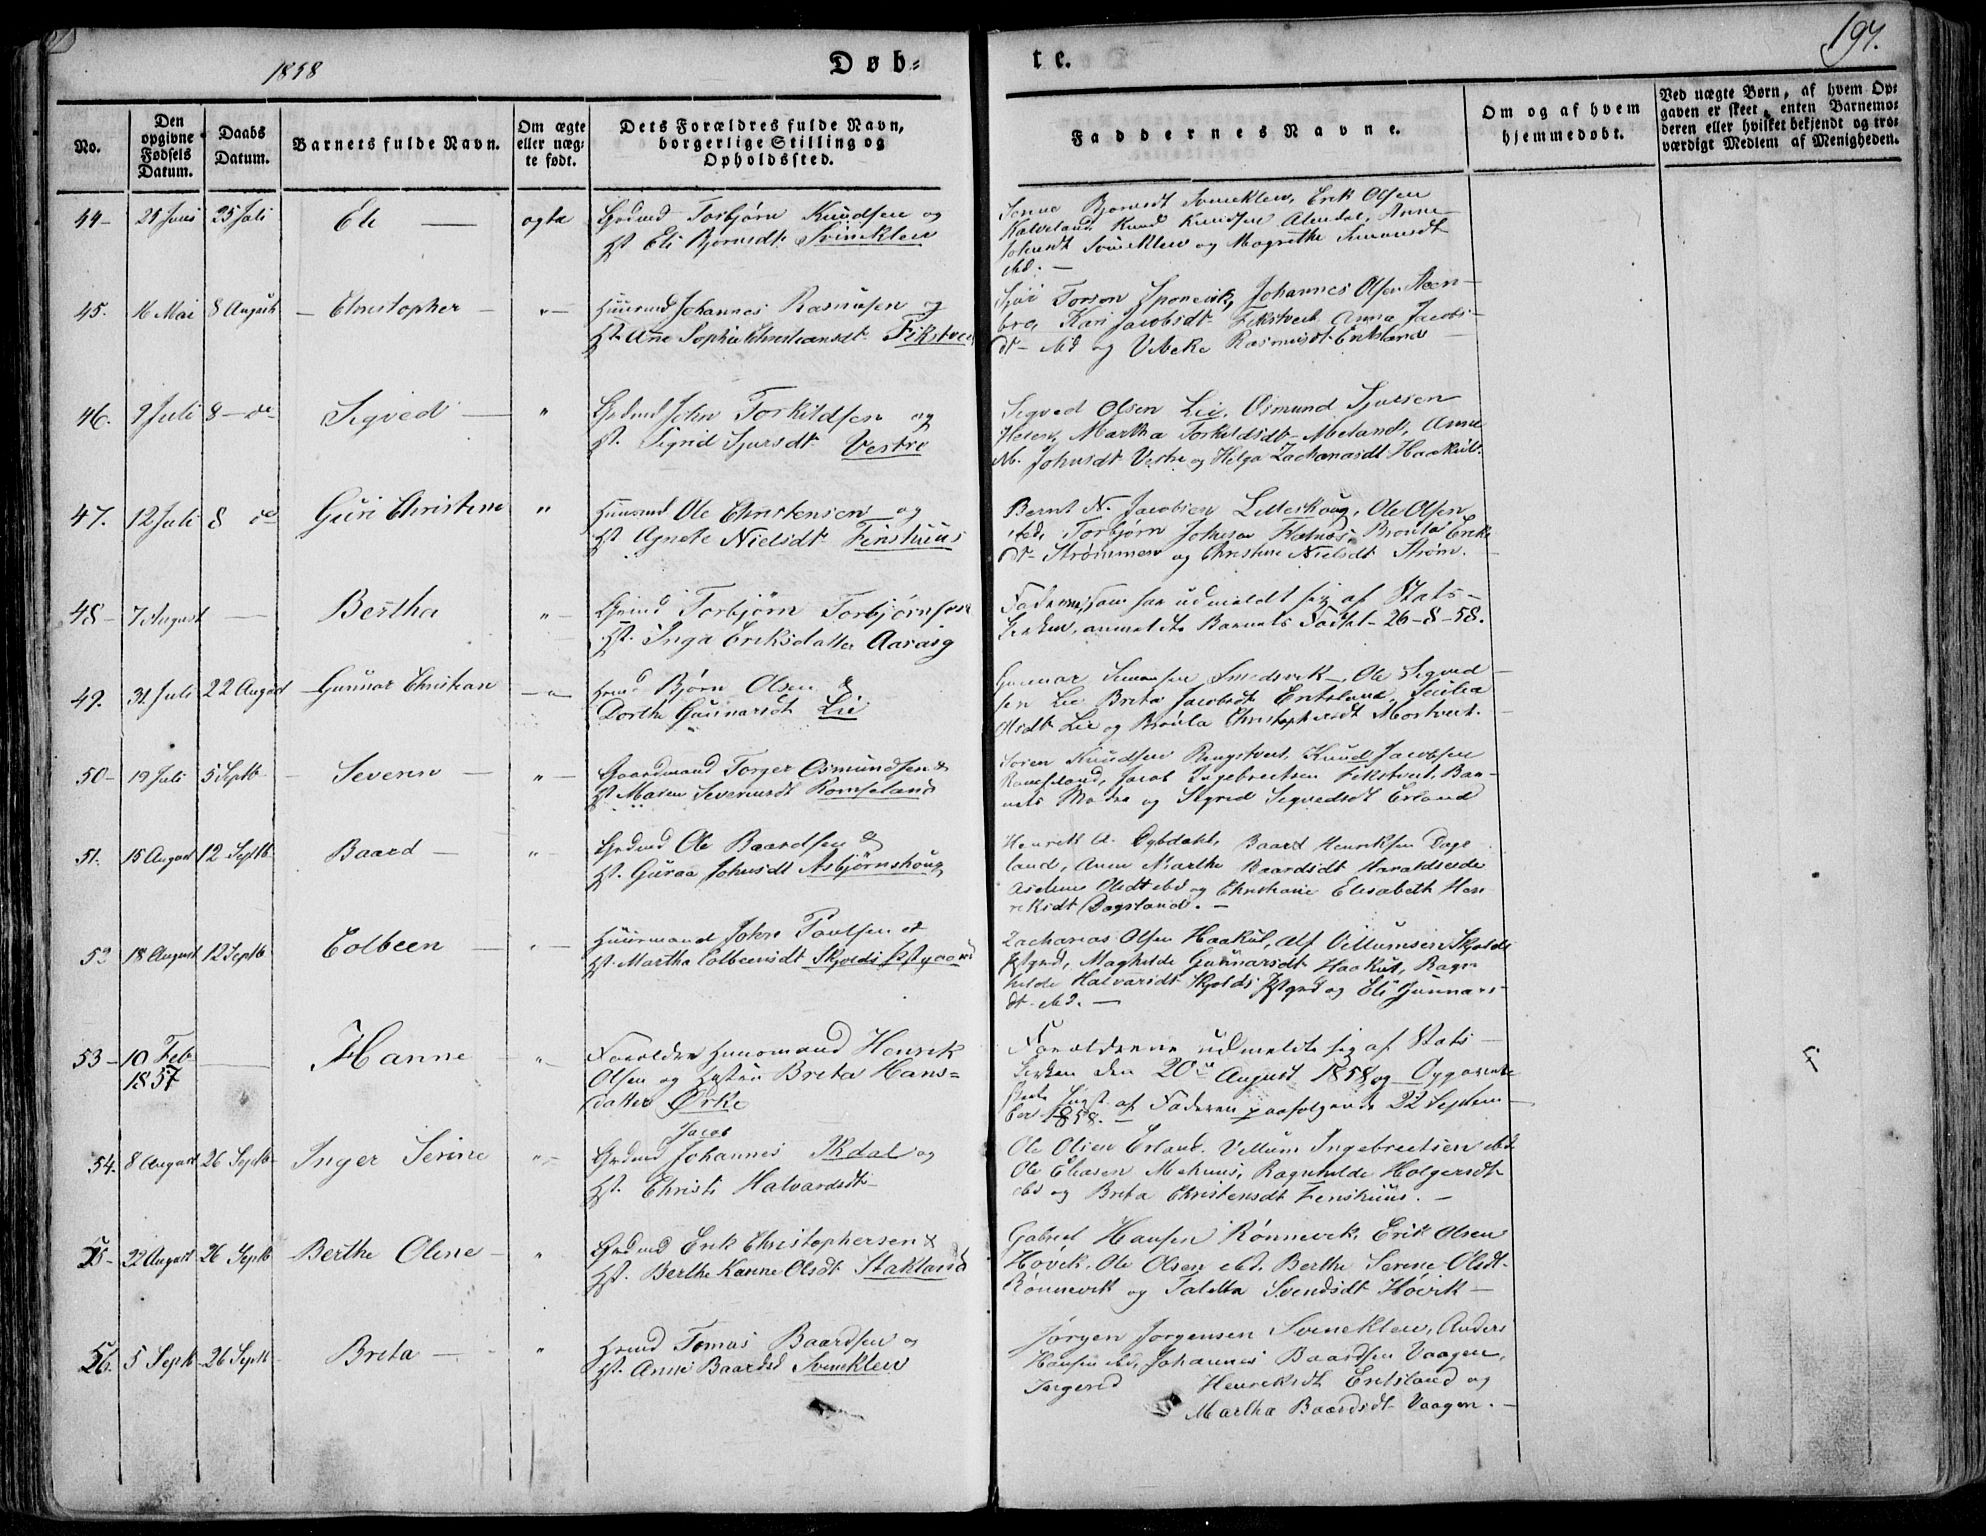 1858
Døb=
te.
197.
No.
Den opgivne Fødsels Datum.
Daabs Datum.
Barnets fulde Navn.
Om ægte eller uæg= te født.
Dets Forældres fulde Navn, borgerlige Stilling og Opholdssted.
Faddernes Navne.
Om og af hvem hjemmedøbt.
Ved uægte Børn, af hvem Op= gaven er skeet, enten Barnemo= deren eller hvilket bekjendt og tro= værdigt Medlem af Menigheden.
44- 25 Juli Eli ægte
Torbjørn Knudsen og
Hst. Eli Bjørnsdt Svineklew
Bjørnsdt Svineklew, Erik Olsen
Knud Knudsen Anne
Johnsdt Svineklew og Magrethe Simonsdt
ibd. -
45. 16 Mai 8 August Christopher
Huusmd Johannes Rasmusen og
Hst. Ane Sophie Christiansdt Fikstveit
Johannes Olsen Steen-
bro, Kari Jacobsdt Fikstveit Anna Jacobs-
dt ibd og Vibeke Rasmusdt Erksland
46. 9 Juli 8 - de Sigved
Grdmd John Torkildsen og
Hst. Sigrid Sjursdt Vestre
Segved Olsen Lie, Osmund Sjursen
Martha Torkildsdt Meland, Anne
M. Johnsdt Vestre og Helga Zachariasdt Haakul.
47. 12 Juli 8 de Guri Christine
Huusmd Ole Christensen og
Hst. Agnete Nielsdt Finshuus
Bernt N. Jacobsen Ole Olsen
ibd, Torbjørn Johnsen Erik-
dt Strømmen og Christine Nielsdt Strøm.
48- 7 August Bertha
Torbjørn Torbjørnsen
Hst. Inga Eriksdatter Aarvig
Faderen, som har udmeldt sig af Stats-
kirken, anmeldte Barnets Fødsel 26-8-58.
49. 31 Juli 22 August Gunnar Christian
Bjørn Olsen &
Dorthe Gunnarsdt Lie
Gunnar Simonsen Smedsvik, Ole Sigved-
sen Lie Breta Jacobsdt Erksland,
Olsdt Lie og Christophersdt
50- 19 Juli 5 Septb Severin
Gaardmand Torger Osmundsen &
Hst Maren Severinsdt Romseland
Søren Knudsen Knud Jacobsen
Romseland, Jacob Ingebretsen Fikstveit, Bar-
nets Moder og Sigrid Sigvedsdt Erland
51. 15 August 12 Septb. Baard
Grdmd Ole Baardsen &
Hst. Guraa Johnsdt Asbjørnshoug
Baard Henriksen Dags
land, Anne Marthe Baardsdt
Olsdt ibd og Christiane Elisabeth Hen
riksdt Dagsland. -
52 18 August 12 Septb. Colbeen
Huusmand John Paulsen et
Hst. Martha Colbeensdt Skjolds Pstgaard
Zacharias Olsen Haakul, Alf Villumsen Skjolds
Pstgrd, Maghilde Gunnarsdt Haakul, Ragn
hilde Halvarsdt Skjolds Pstgrd og Eli Gunnars-
dt ibd. -
53- 10 Feb 1857 Hanne
Forældre Huusmand Henrik
Olsen og Hustru Breta Hans=
datter Ørke
Forældrene udmeldte sig af Stats-
kirken den 20de August 1858 og Opgavende
af Faderen paafølgende 22 Septem-
ber 1858. -
54. 8 August 26 Septb. Inger Serine
Jacob
Grdmd Johannes Ikdal og
Hst. Christi Halvardsdt
Ole Olsen Erland, Villum Ingebretsen ibd
Ole Eliasen Mehuus, Ragnhilde Holgersdt
ibd og Breta Christensdt Finshuus. -
55- 22 August 26 Septb Berthe Oline
Grdmd Erik Christophersen &
Hst. Berthe Karine Olsdt Stakland
Gabriel Hansen Rønnevik, Erik Olsen
Høvik, Ole Olsen ibd. Berthe Serine Olsdt
Rønnevik og Taletta Svendsdt Høivik -
56. 5 Septb 26 Septb Breta
Tomas Baardsen og
Hst. Anne Baardsd Svineklew
Jørgen Jørgensen Svineklew, Anders
Hansen ibd, Johannes Baardsen Vaagen,
Ingerid Henriksdt Erksland og
Martha Baardsdt Vaagen. -